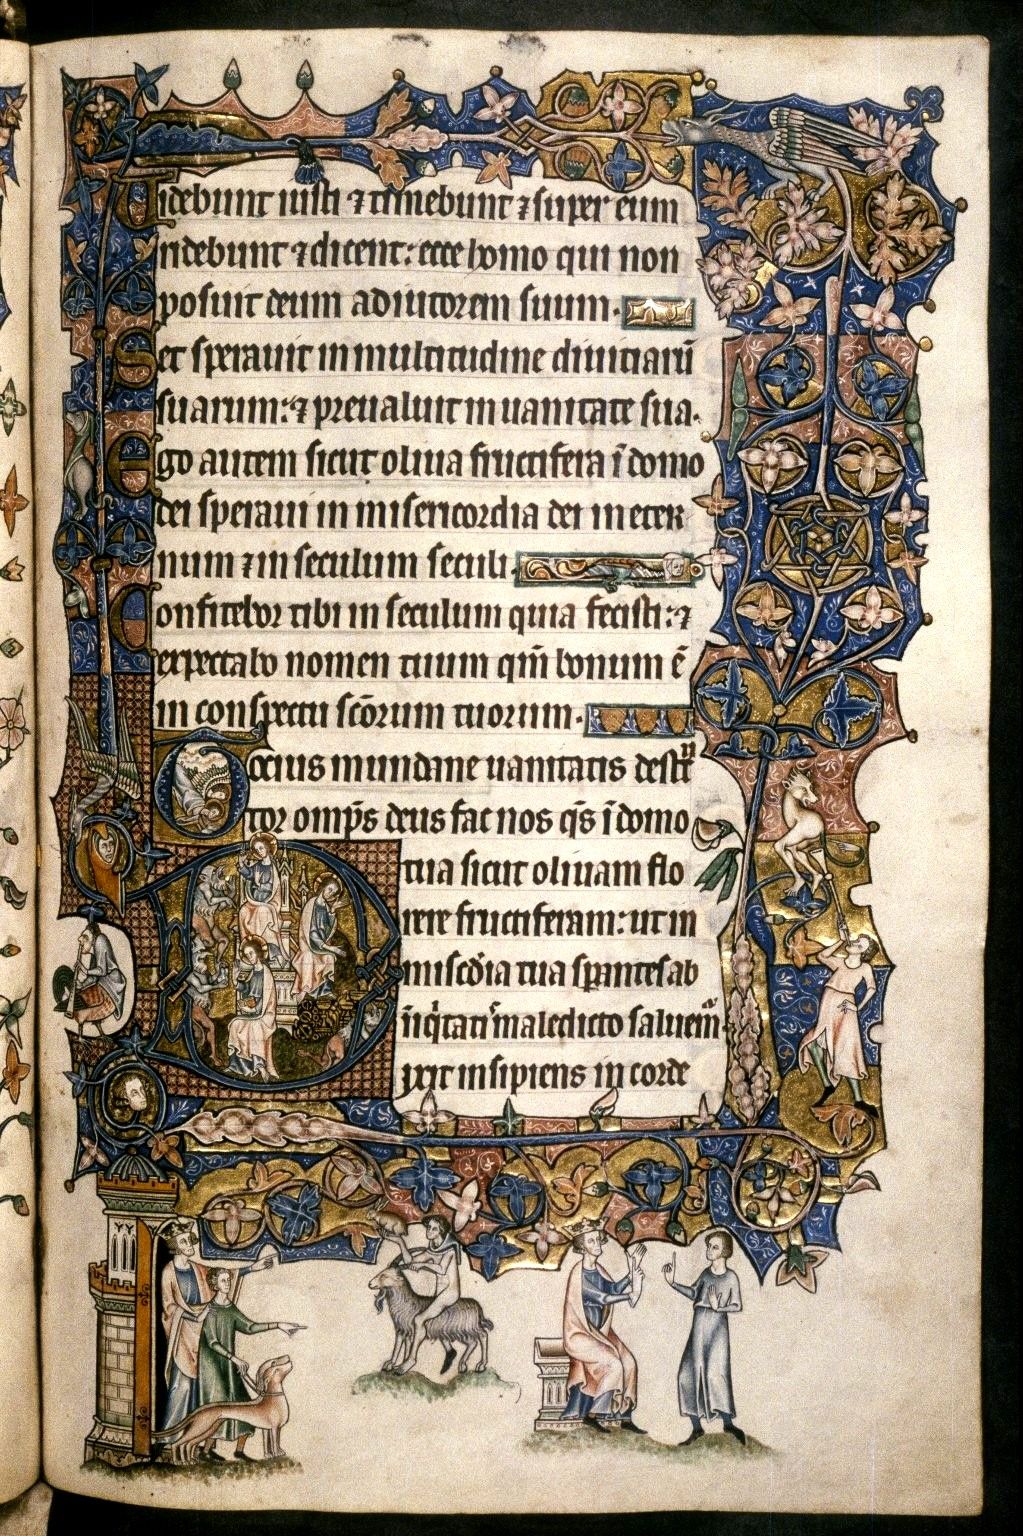 Videbunt iusti ⁊ timebunt ⁊ super eum
ridebunt ⁊ dicent: ecce homo qui non
posuit deum adiutorem suum.
Set sperauit in multitudine diuitiaru̅
suarum: ⁊ preualuit in uanitate sua.
Ego autem sicut oliua fructifera i̅ domo
dei speraui in misericordia dei in eter
num ⁊ in seculum seculi.
Confitebor tibi in seculum quia fecisti: ⁊
expectabo nomen tuum qm̅ bonum e̅
in conspectu sc̅orum tuorum.
Tocius mundane uanitatis
tor omp̅s deus fac nos q̅s i̅ domo
tua sicut oliuam flo
rere fructiferam: ut in
tua sperantes ab
maledicto
Dixit insipiens in corde